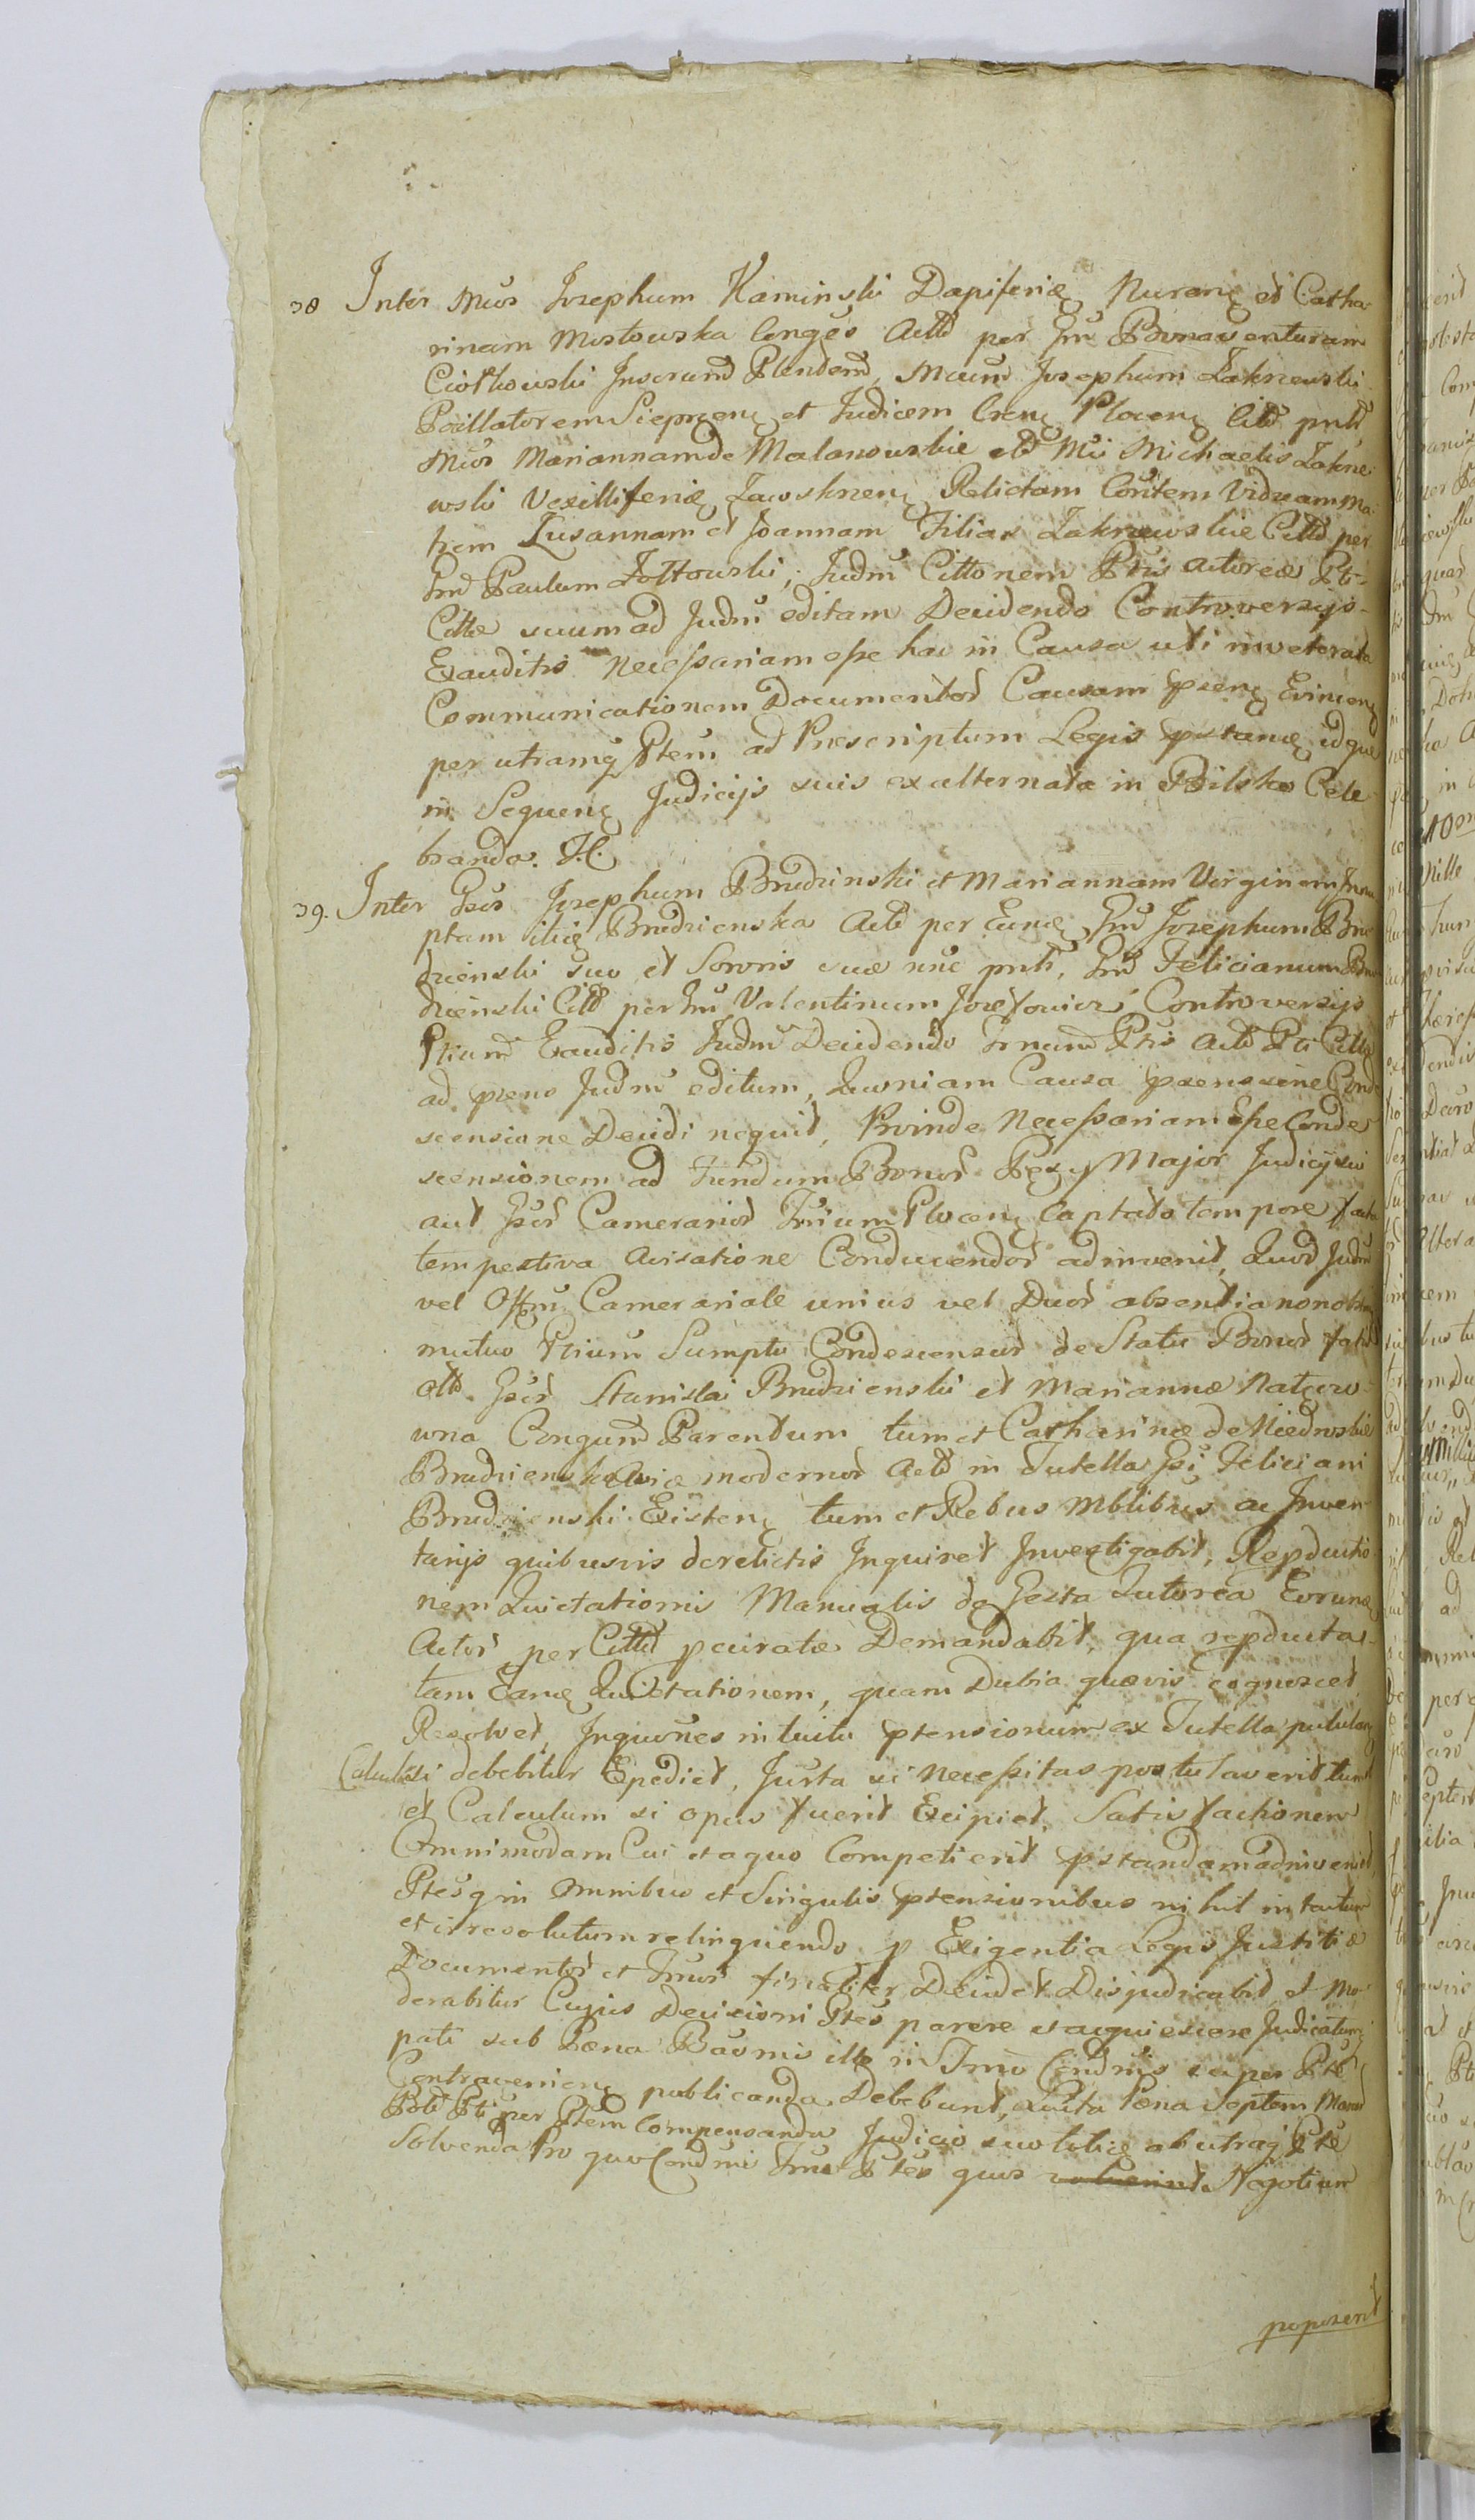 38 Inter Mcos Josephum Kaminski Dapiferiæ Nurenę et Catha
rinam Mostowska Conges Actt per Gm Bonaventuram
Ciołkowski Juserund Plendend, Mcum Josephum Zakrzewski
Pocillatorem Sieprzenę et Judicem Crenę Plocenę Citt pntt
Mcos Mariannam de Malanowskie ott Mci Michaelis Zakrze
wski Vexilliferiæ Zawskrzenę Relictam Contem Viduam Ma
trem Zusannam et Joannam Filias Zakrzewskie Citt per
Gm Paulum Zołtowski, Judm Cittonem Ptis Actorea Pti
Cittæ suum ad Judm editam Decidendo Controversijs
Exauditis necessariam esse hac in Causa uti inveterata
Communicationem Documentor Causam psenę Evincenę
per utramq Ptem ad Præscriptum Legis pstanę idque
in Sequenę Judicijs suis ex alternata in Bilsko Cele
brandis. H.
39. Inter Gsos Josephum Brudzinski et Mariannam Virginem Innu
ptam itię Brudzienska Actt per Eunę Gm Josephum Bru
dzienski suo et Sororis suæ nne pntt, Gm Felicianum Bru
dzienski Citt per Gm Valentinum Jozefowicz Controversijs
Ptium Exauditis Judm Decidendo Trnum Ptis Actt Pti Cittæ
ad psens Judm editum, Quoniam Causa psens sine Conde
scensione Decidi nequit, Proinde Necessariam esse Conde
scensionem ad Fundum Bonor Pęzy Major Judicij sui
aut Gsor Camerarior Trrium Plocenę Captato tempore facta
tempestiva Avisatione Conducendor adinvenit, Quod Judm
vel Offm Camerariale unius vel Duor absentia non obstan
mutuo Ptium Sumptu Condescensur de Statu Bonor
ott Gsor Stanislai Brudzienski et Mariannæ
wna Congum Parentum tum et Catharinæ de Niedroskie
Brudzienska Aviæ modernor Actt in Tutella Gsi Feliciani
Brudzienski Existenę tum et Rebus Mblibus ac Inven
tarijs quibusvis derelictis Inquiret Investigabit, Repductio
nem Quietationis Manualis de Gesta Tutorea Eorunę
Actor per Citt pcuratæ Demandabit, qua repducta
tam Eanę Quietationem, quam Dubia quævis cognoscet
Resolvet, Inquones intuitu ptensionum ex Tutella pululanę
Calculi si debebitur Expediet, Jurta si necessitas postulaverit tum
et Calculum si opus fuerit Excipiet, Satisfactionem
Omnimodam Cui et a quo Competierit pstandam adinveniet,
Ptesq in Omnibus et Singulis ptensionibus nihil intactum
et irresolutum relinquendo p Exigentia Legis Justitiæ
Documentor et Jrium finaliter Decidet Disjudicabit et Mo
derabitur Cujus Decisioni Ptes parere et acquiescere Judicatumq
pati sub Pæna Baonis itte in Trno Cond
Contravenienę publicanda Debebunt, Luita Pæna Septem Marcar
Poti Pti per Ptem Compensanda Judicio suo totię ab utraq Pte
Solvenda Pro quo Trno Ptes quos Negotium
poposcerit